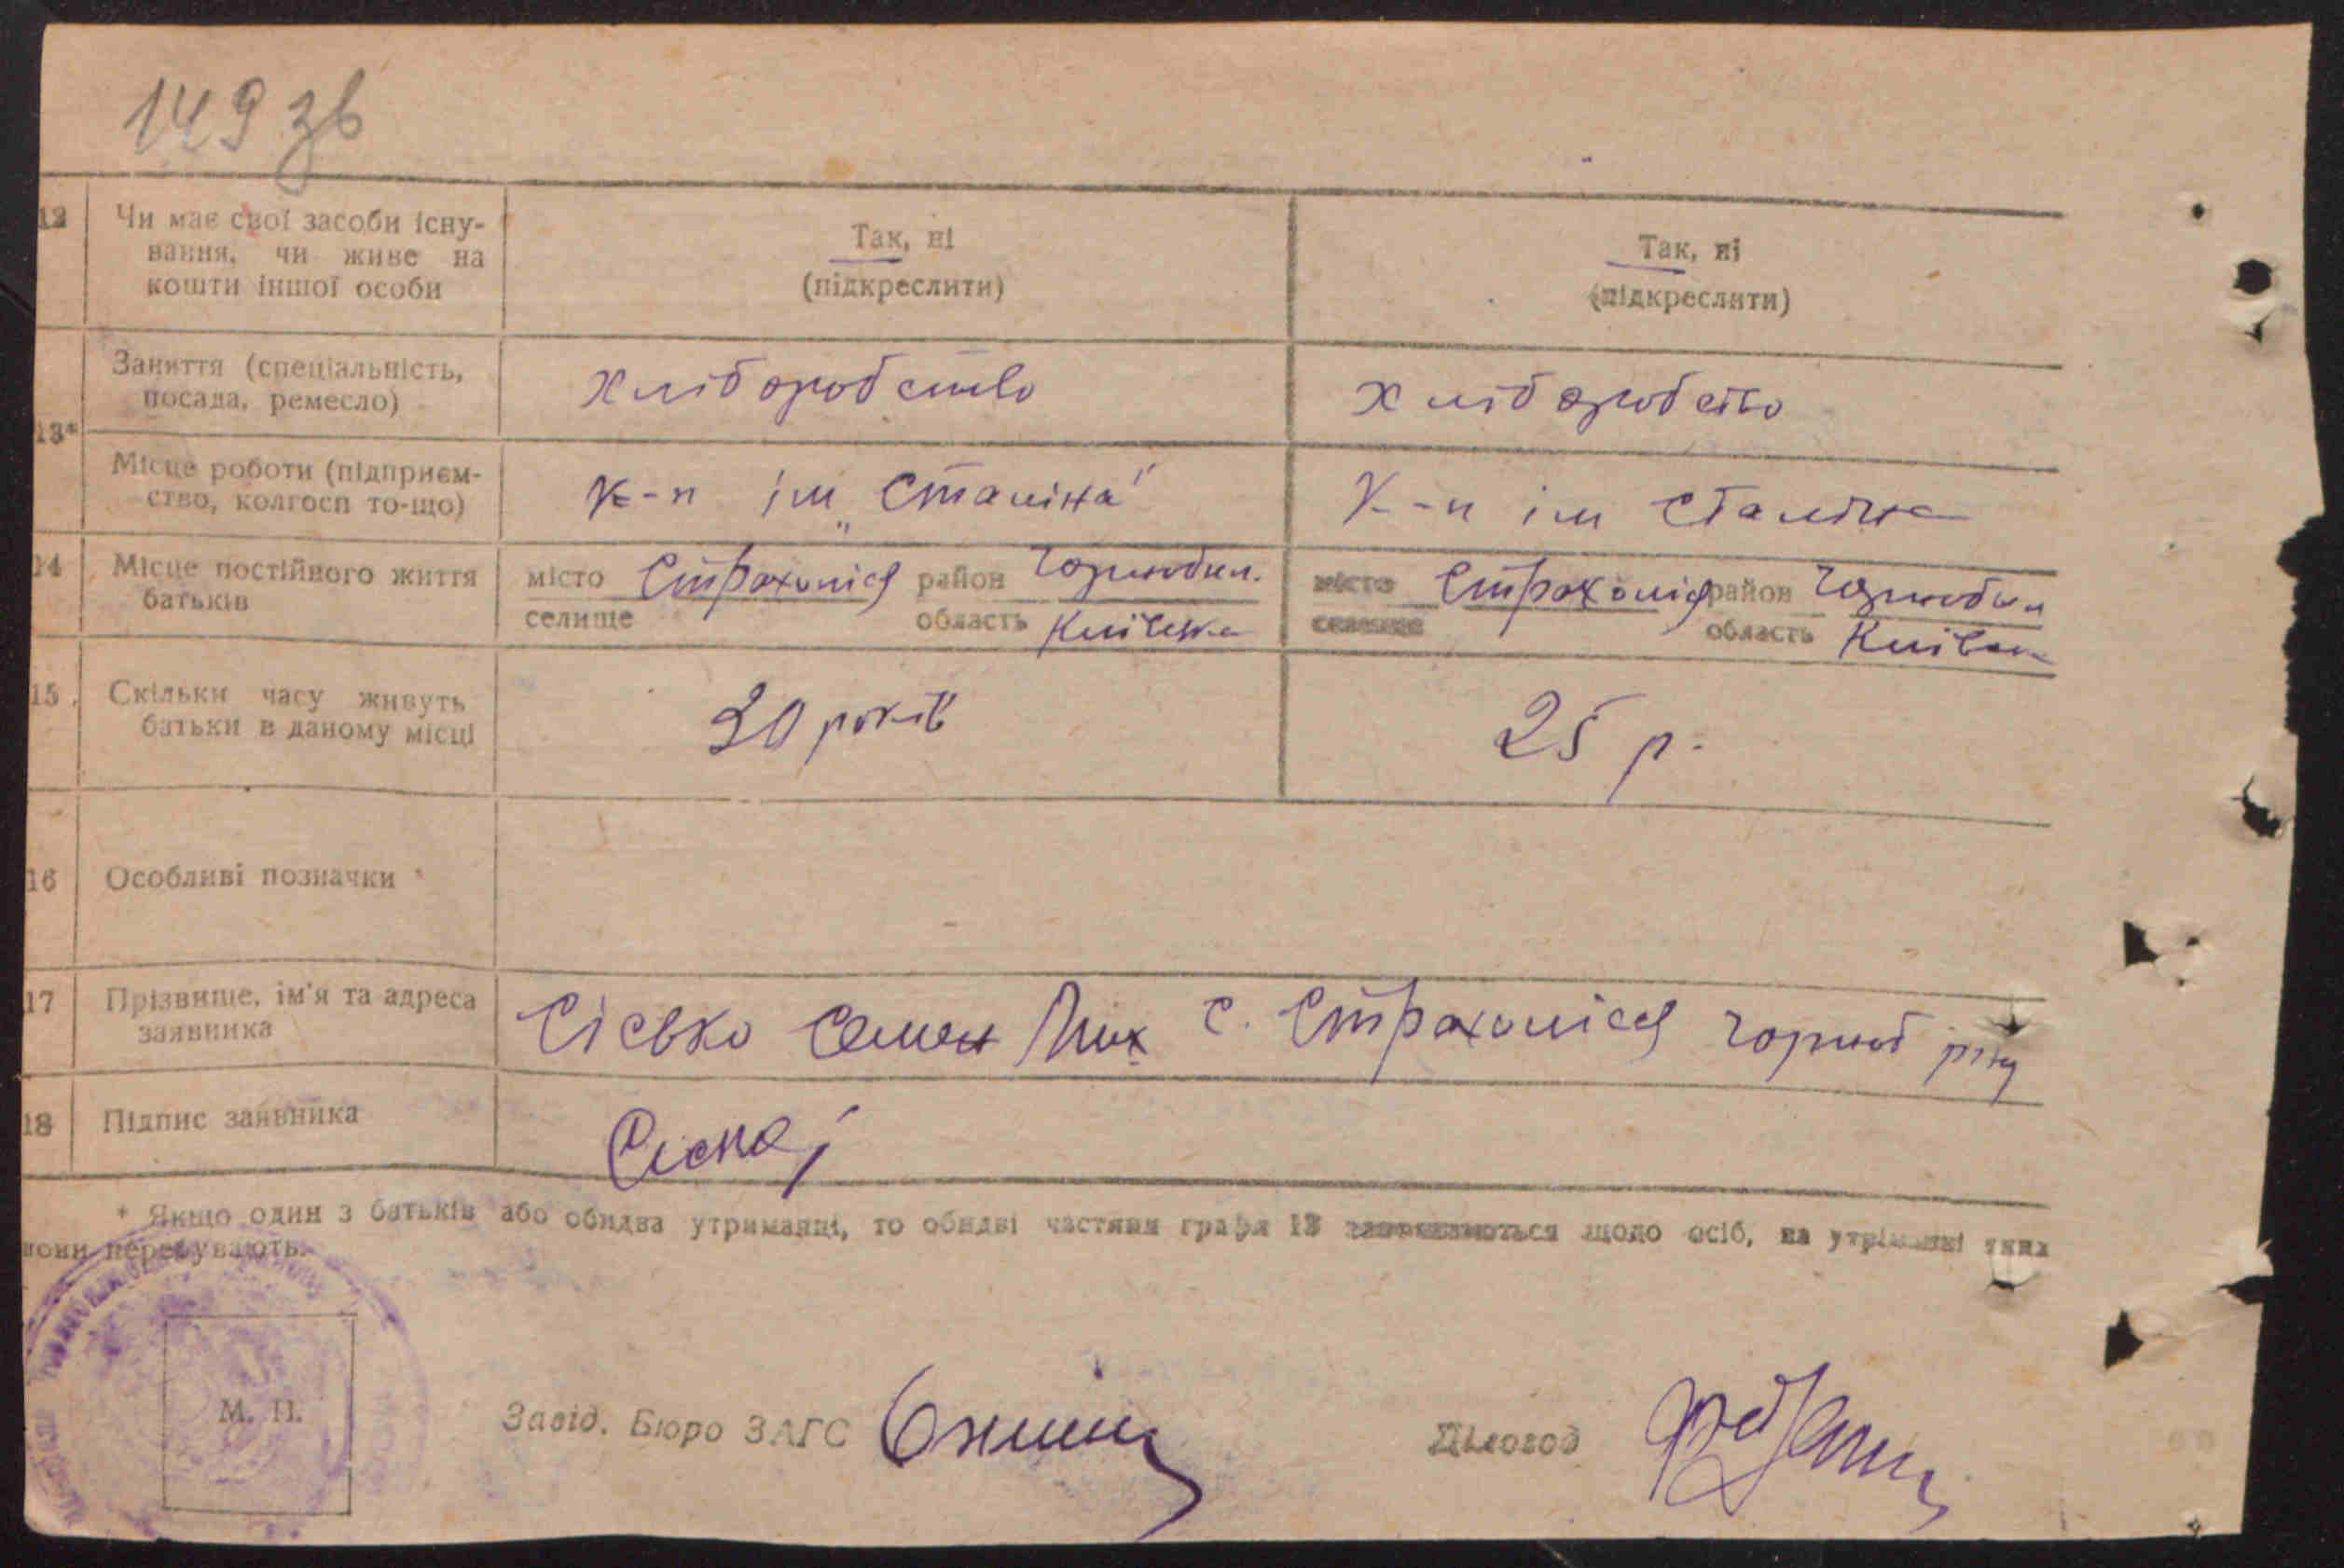 149 зв
12 Чи має свої засоби існу-
вання, чи живе на
кошти іншої особи
Так, ні
(підкреслити)
Так, ні
(підкреслити)
13*
Заняття (спеціальність,
посада, ремесло)
Хліборобство
Хліборобство
Місце роботи (підприєм-
ство, колгосп то-що)
К-п ім „Сталіна"
К-п ім Сталіна
14 Місце постійного життя
батьків
місто Страхолісся район Чорнобил.
селище область Київська
місто Страхолісся район Чорнобил
селище область Київськ
15 Скільки часу живуть
батьки в даному місці
30 років
25 р.
16 Особливі позначки
17 Прізвище, ім'я та адреса
заявника
Сісько Семен Мих с. Страхолісся Чорноб р-ну
18 Підпис заявника
* Якщо один з батьків або обидва утриманці, то обидві частини графи 13 заповнюються щодо осіб, на утриманні яких
вони перебувають.
М. П.
Завід. Бюро ЗАГС
Діловод